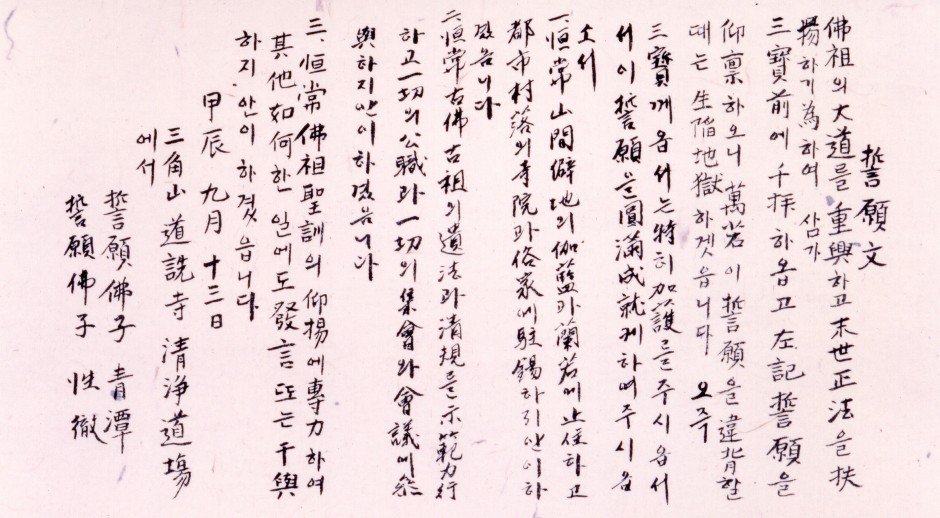 誓願文
佛祖의 大道를 重興하고 末世正法을 扶
揚하기 爲하여 삼가
三寶前에 千拜하옵고 左記 誓願을
仰禀하오니 萬若 이 誓願을 違背할
때는 生陷地獄하겟읍니다 오즉
三寶께옵서는 特히 加護를 주시옵서
서 이 誓願을 圓滿成就케하여 주시옵
소서
一. 恒常 山間僻地의 伽藍과 蘭若에 止住하고
都市村落의 寺院과 俗家에 駐錫하지 안이하
겠읍니다
二. 恒常 古佛古祖의 遺法과 清規를 示範力行
하고 一切의 公職과 一切의 集會와 會議에 參
與하지 안이하겠읍니다
三. 恒常 佛祖聖訓의 仰揚에 專力하여
其他 如何한 일에도 發言 또는 干與
하지 안이 하겠읍니다
甲辰 九月 十三日
三角山 道詵寺 清淨道場
에서
誓願佛子 青潭
誓願佛子 性徹